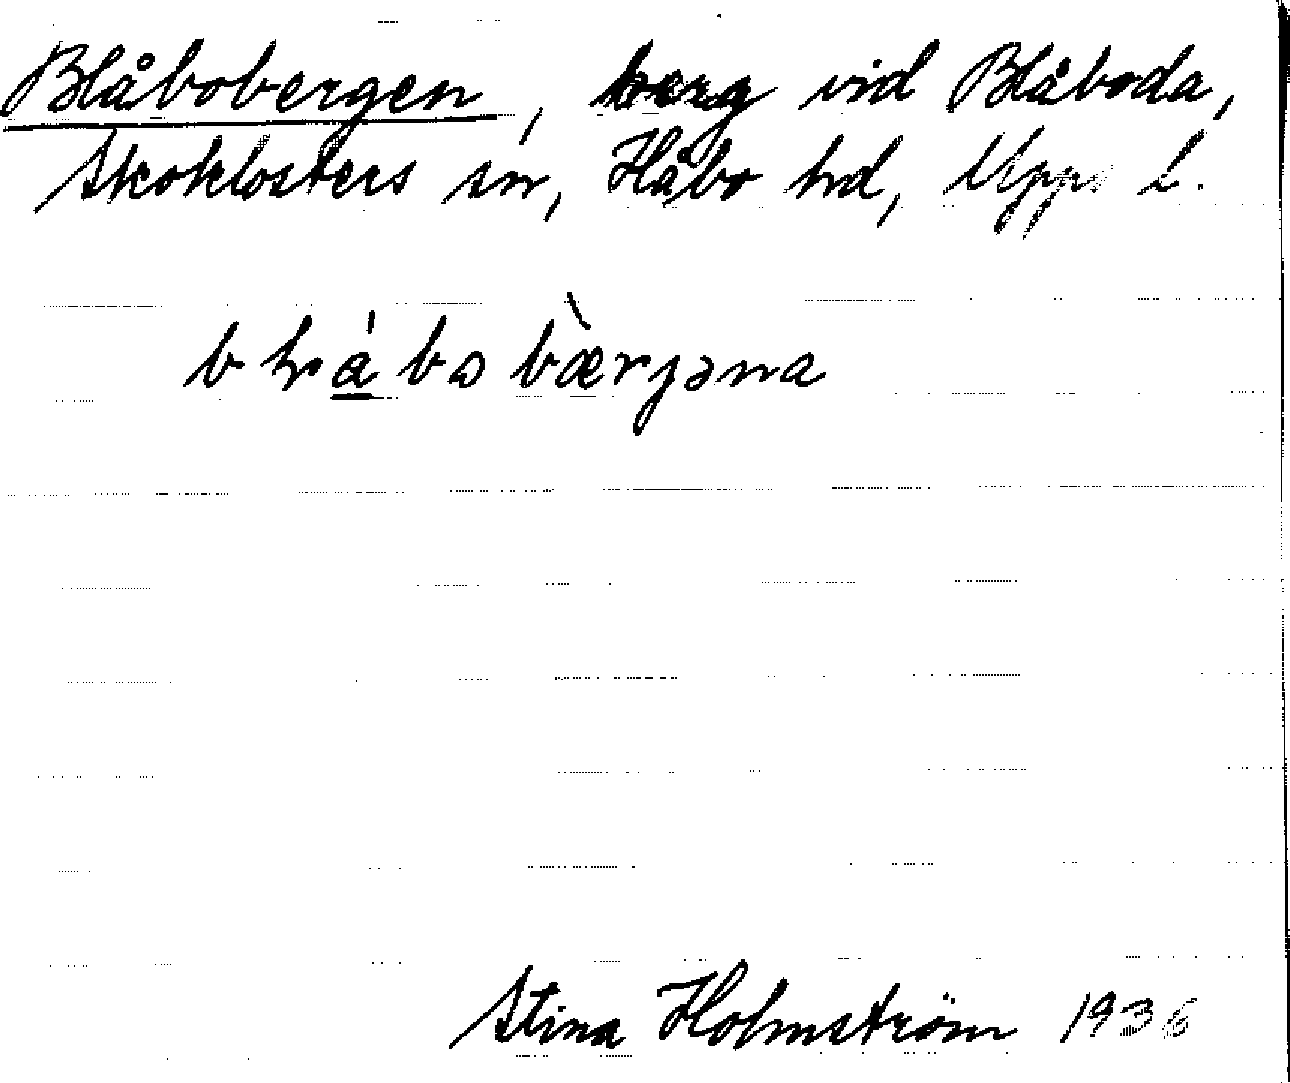 Blåbobergen, berg vid Blåboda,
Skoklosters sn, Håbo hd, Upps l.
Stina Holmström 1936